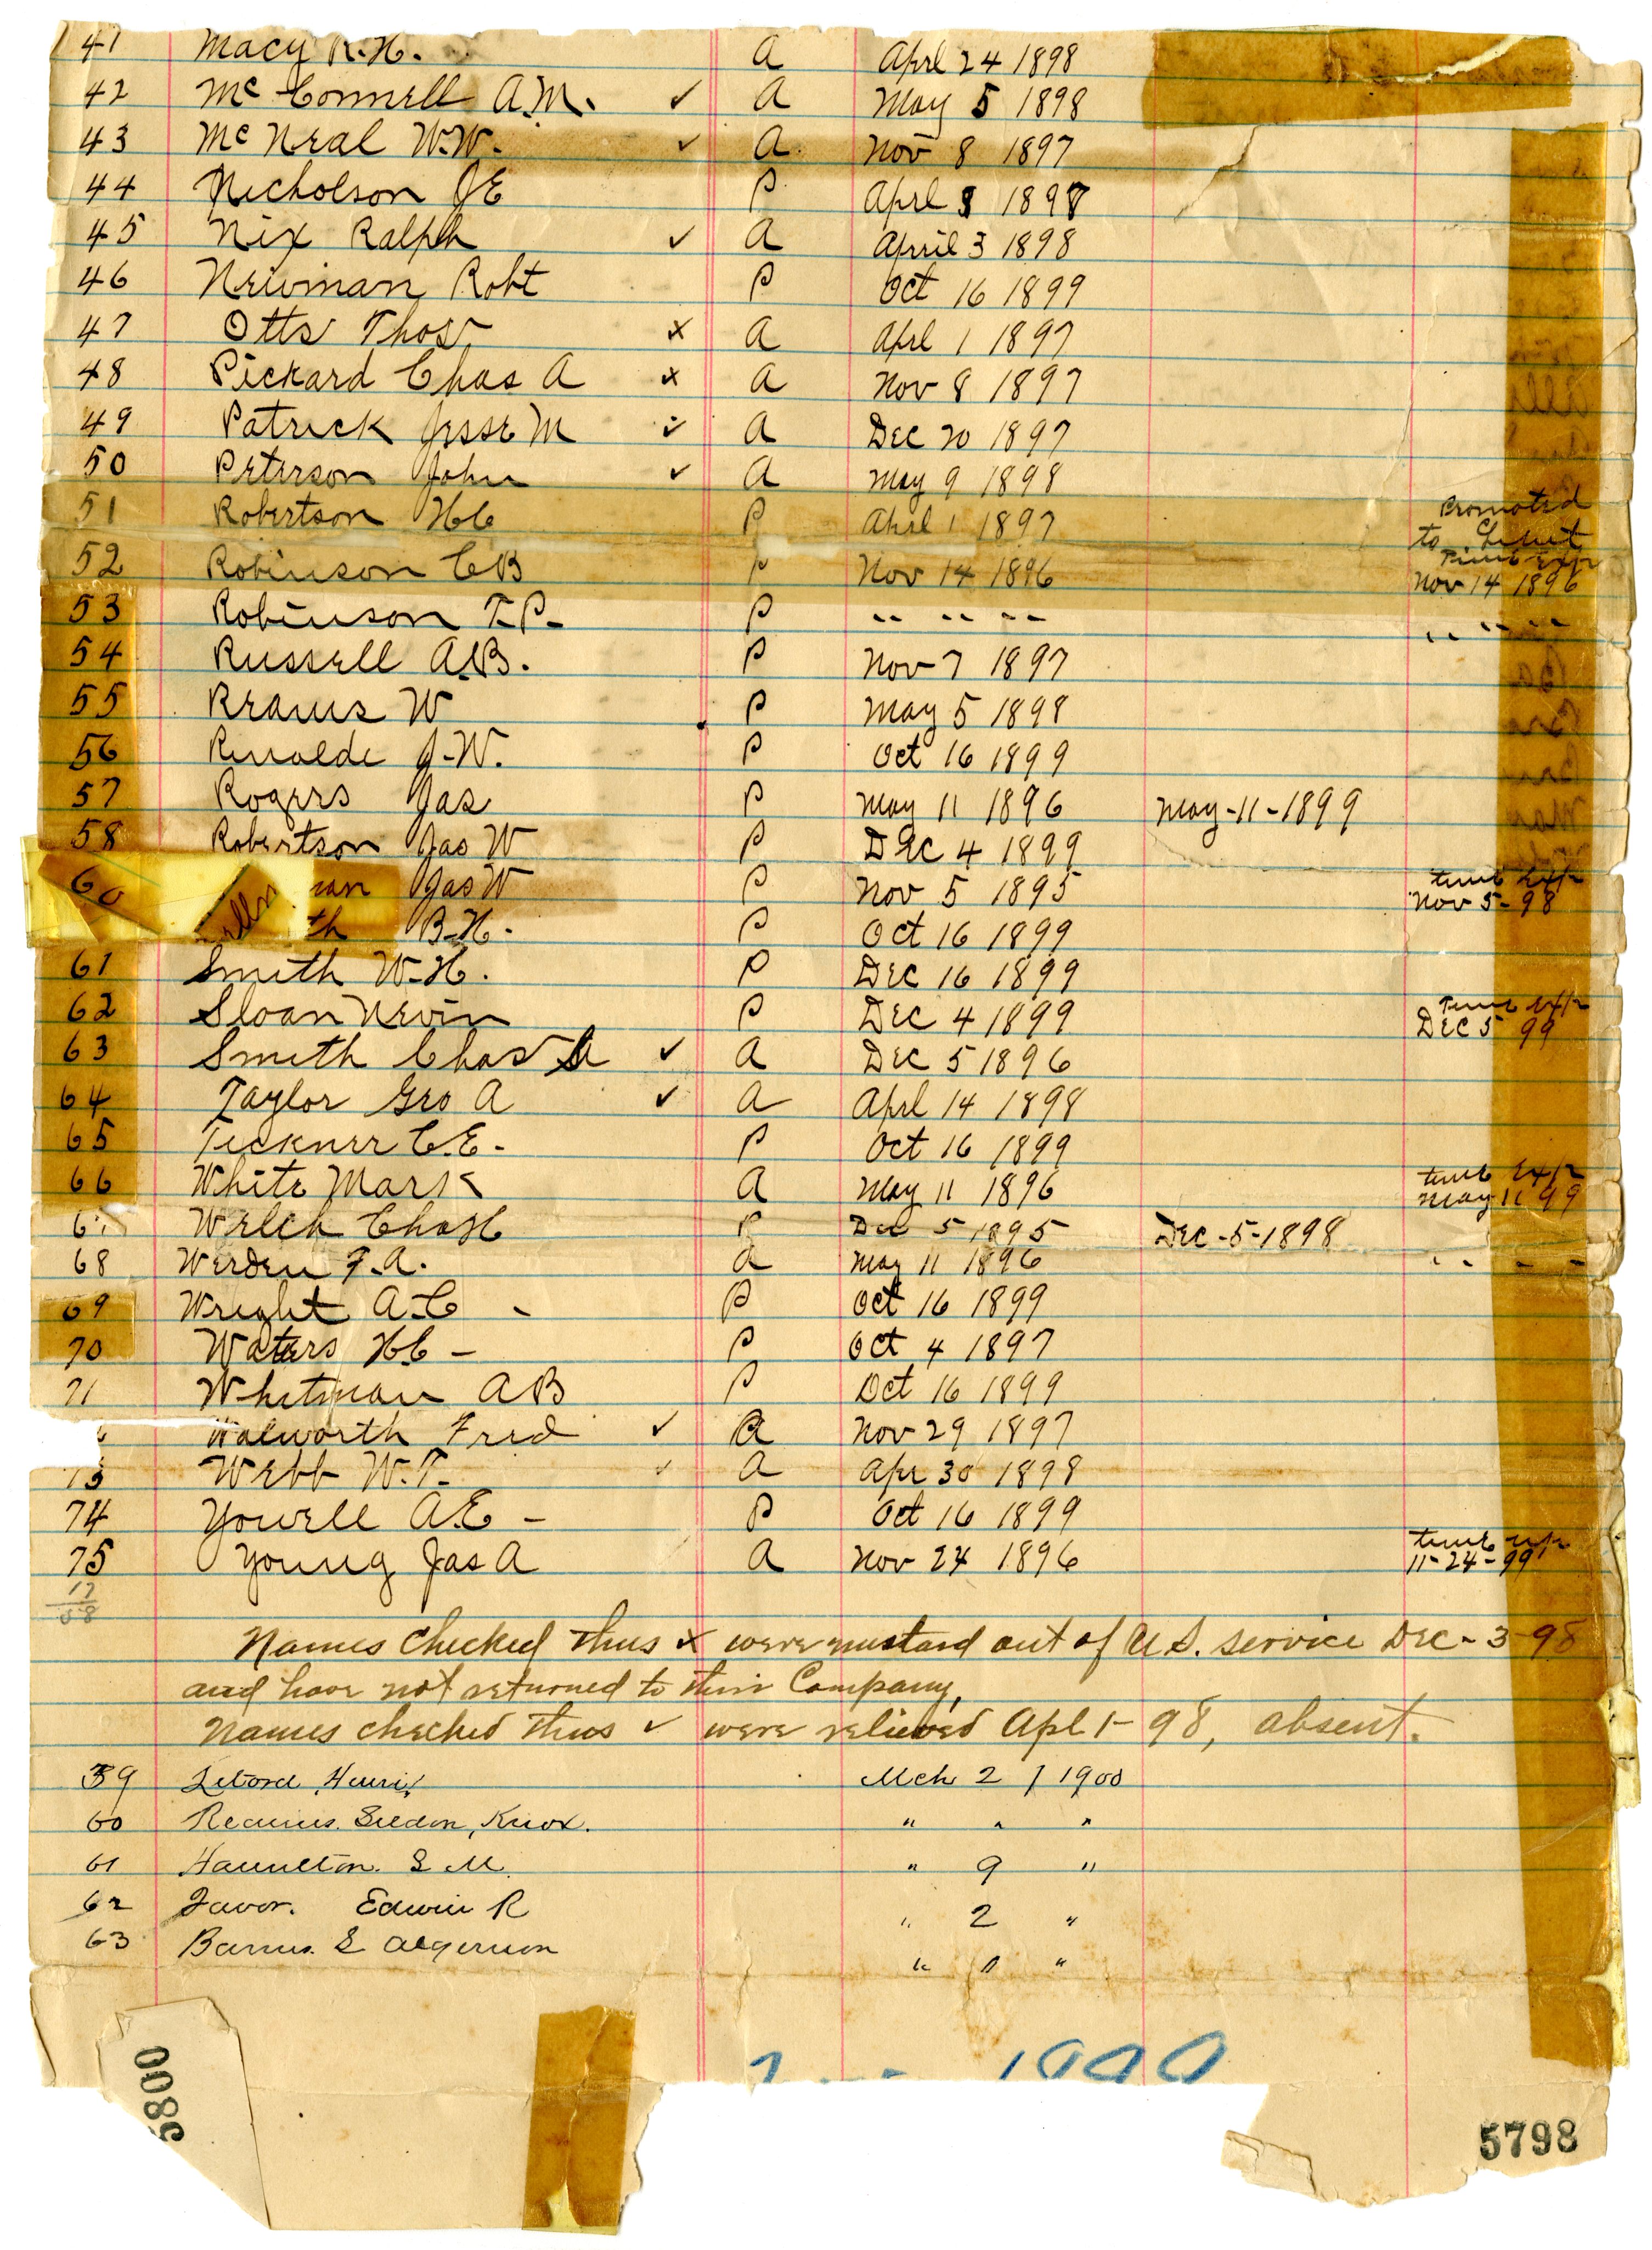 41 Macy R.H. A Aprl 24 1898
42 McConnell A.M. ✓ A May 5 1898
43 McNeal W.W. ✓ A Nov 8 1897
44 Nicholson JE P Aprl 1898
45 Nix Ralph ✓ A April 3 1898
46 Newman Robt P Oct 16 1899
47 Otts Thos x A Aprl 1 1897
48 Pickard Chas A x A Nov 8 1897
49 Patrick Jesse M ✓ A Dec 20 1897
50 Peterson John ✓ A May 9 1898
51 Robertson HC P Aprl 1 1897 Promoted
to Lieut
52 Robinson CB P Nov 14 1896 Time Exp
Nov 14 1896
53 Robinson T.P. P " " " " " "
54 Russell A.B. P Nov 7 1897
55 Reams W P May 5 1898
56 Rinalde J.W. P Oct 16 1899
57 Rogers Jas P May 11 1896 May-11-1899
58 Robertson Jas W P Dec 4 1899
60 man Jas W P Nov 5 1895 time Exp
Nov 5-98
th B.H. P Oct 16 1899
61 Smith W.H. P Dec 16 1899
62 Sloan Nevin P Dec 4 1899 Time Exp
Dec 5 99
63 Smith Chas A ✓ A Dec 5 1896
64 Taylor Geo A ✓ A Aprl 14 1898
65 Tickner C.E. P Oct 16 1899
66 White Mark A May 11 1896 time Exp
May 11 99
Welch Chas H P Dec 5 1895 Dec-5-1898
68 Werden F.A. A May 11 1896 " " "
69 Wright A.C - P Oct 16 1899
70 Waters HC - P Oct 4 1897
71 Whitman AB P Oct 16 1899
Walworth Fred ✓ A Nov 29 1897
73 Webb W.T. ✓ A Apr 30 1898
74 Yowell A.E - P Oct 16 1899
75 Young Jas A A Nov 24 1896 time up
11-24-99
17
58
Names checked thus x were mustard out of U.S. service Dec-3-98
and have not returned to this Company,
Names checked thus ✓ were relieved Apl 1-98, absent.
39 Henri Mch 2 / 1900
60 Knox. " " "
61 Hamilton. S M. " 9 "
62 Favor. Edwin R " 2 "
63 Barrus. S Algernon " " "
5800
5798